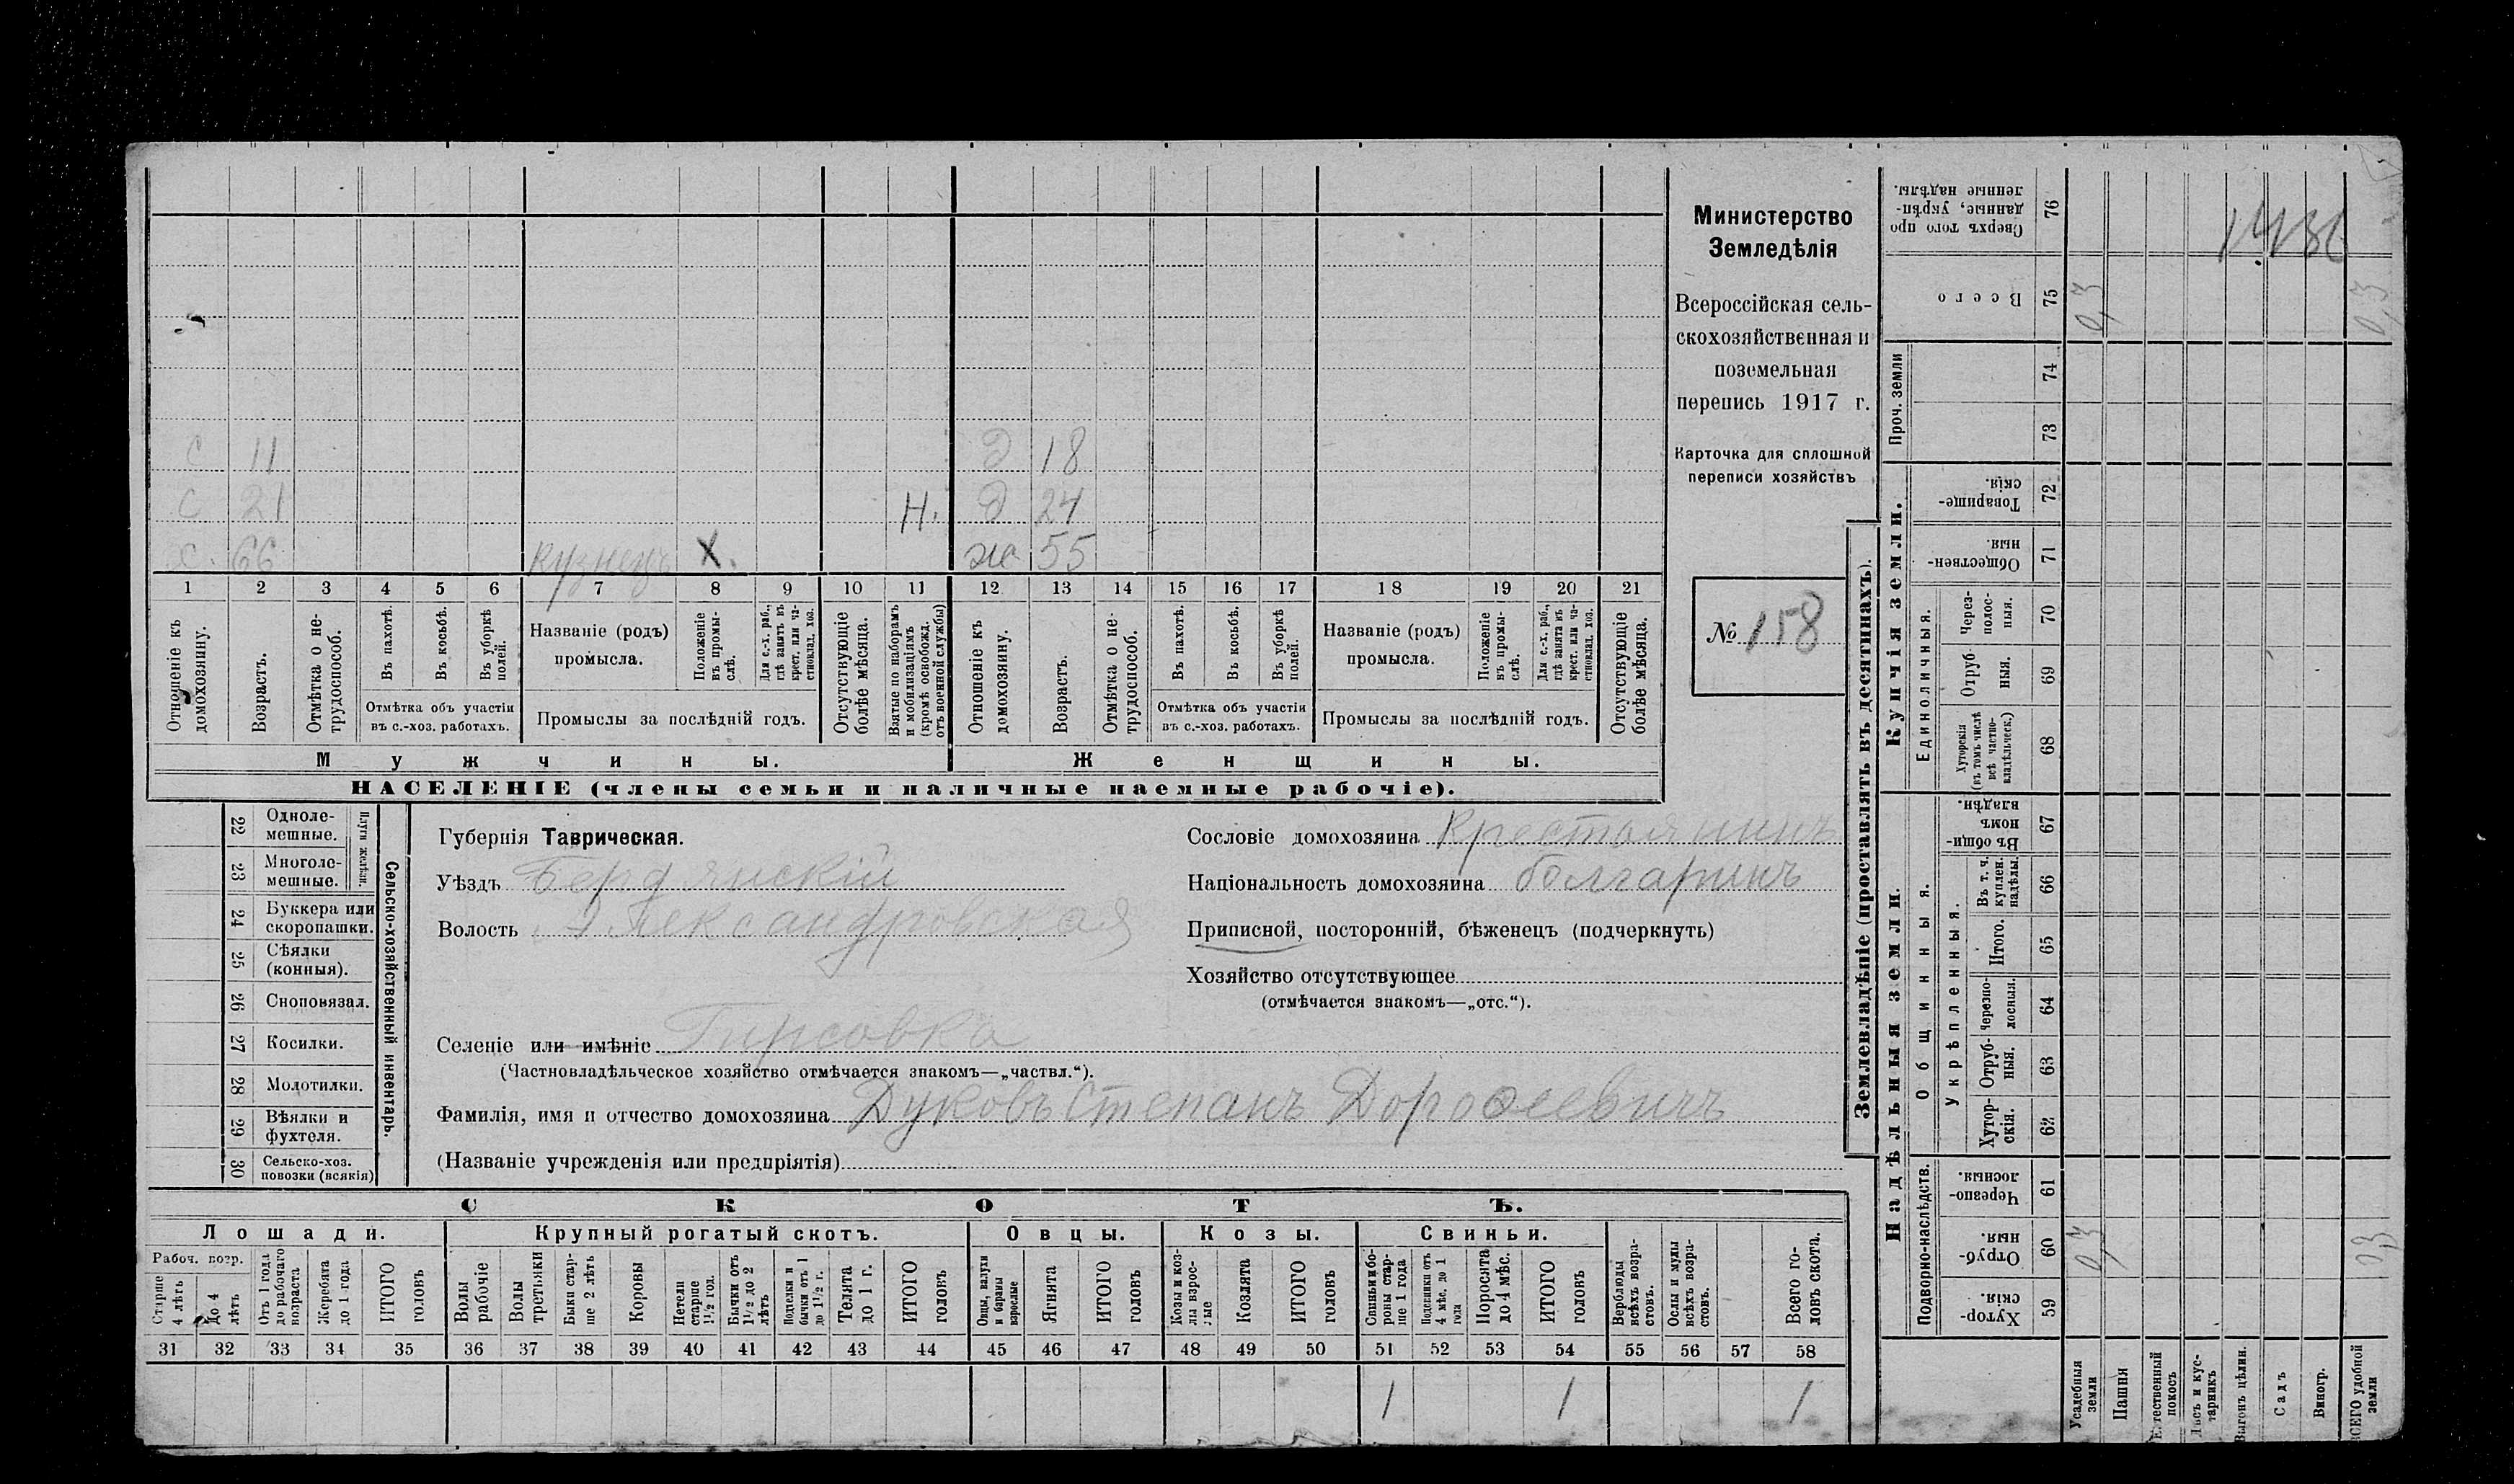 С 11 Д 18
С 21 Н. Д 24
Х. 66 Кузнецъ Х. Ж 55
1 2 3 4 5 6 7 8 9 10 11 12 13 14 15 16 17 18 19 20 21
Отношеніе къ домохозяину.
Возрастъ.
Отмѣтка о не-трудоспособ.
Въ пахотѣ.
Въ косьбѣ.
Въ уборкѣ полей.
Отмѣтка объ участіи
въ с.-хоз. работахъ.
Названіе (родъ)
промысла.
Положеніе въ промы-слѣ.
Для с.-х. раб., гдѣ занятъ въ крест. или ча-стновлад. хоз.
Промыслы за послѣдній годъ.
Отсутствующіе болѣе мѣсяца.
Взятые по наборамъ и мобилизаціямъ (кромѣ освобожд. отъ военной службы)
Отношеніе къ домохозяину.
Возрастъ.
Отмѣтка о не-трудоспособ.
Въ пахотѣ.
Въ косьбѣ.
Въ уборкѣ полей.
Отмѣтка объ участіи
въ с.-хоз. работахъ.
Названіе (родъ)
промысла.
Положеніе въ промы-слѣ.
Для с.-х. раб., гдѣ занята въ крест. или ча-стновлад. хоз.
Промыслы за послѣдній годъ.
Отсутствующіе болѣе мѣсяца.
Мужчины. Женщины.
НАСЕЛЕНІЕ (члены семьи и наличные наемные рабочіе).
Министерство
Земледѣлія
Всероссійская сель-
скохозяйственная и
поземельная
перепись 1917 г.
Карточка для сплошной
переписи хозяйствъ
№ 158
22 Одноле-мешные.
23 Многоле-мешные.
Плуги желѣзн.
24 Буккера или скоропашки.
25 Сѣялки (конныя).
26 Сноповязал.
27 Косилки.
28 Молотилки.
29 Вѣялки и фухтеля.
30 Сельско-хоз. повозки (всякія)
Сельско-хозяйственный инвентарь.
Губернія Таврическая.
Уѣздъ Бердянскій
Волость Александровская
Селеніе или имѣніе Гирсовка
(Частновладѣльческое хозяйство отмѣчается знакомъ—„частвл.“).
Фамилія, имя и отчество домохозяина Дуковъ Степанъ Дорофеевичъ
(Названіе учрежденія или предпріятія)
Сословіе домохозяина Крестьянинъ
Національность домохозяина болгаринъ
Приписной, посторонній, бѣженецъ (подчеркнуть)
Хозяйство отсутствующее
(отмѣчается знакомъ—„отс.“).
СКОТЪ.
Лошади. Крупный рогатый скотъ. Овцы. Козы. Свиньи.
Рабоч. возр.
Старше 4 лѣтъ
До 4 лѣтъ
Отъ 1 года до рабочаго возраста
Жеребята до 1 года
ИТОГО головъ
Волы рабочіе
Волы третьяки
Быки стар-ше 2 лѣтъ
Коровы
Нетели старше 1½ год.
Бычки отъ 1½ до 2 лѣтъ
Подтелки и бычки отъ 1 до 1½ г.
Телята до 1 г.
ИТОГО головъ
Овцы, валухи и бараны взрослые
Ягнята
ИТОГО головъ
Козы и коз-лы взрос-лые
Козлята
ИТОГО головъ
Свиньи и бо-ровы стар-ше 1 года
Подсвинки отъ 4 мѣс. до 1 года
Поросята до 4 мѣс.
ИТОГО головъ
Верблюды всѣхъ возра-стовъ.
Ослы и мулы всѣхъ возра-стовъ.
Всего го-ловъ скота.
31 32 33 34 35 36 37 38 39 40 41 42 43 44 45 46 47 48 49 50 51 52 53 54 55 56 57 58
1 1 1
Землевладѣніе (проставлять въ десятинахъ).
Купчія земли.
Надѣльныя земли.
Сверхъ того про-данные, укрѣп-ленные надѣлы. 76
Всего 75 0,3 0,3
Проч. земли 74 73
Товарище-скія. 72
Обществен-ныя. 71
Единоличныя.
Через-полос-ныя. 70
Отруб-ныя. 69
Хуторскія (въ томъ числѣ всѣ частно-владѣльческ.) 68
Общинныя.
Въ общи-номъ владѣн. 67
Укрѣпленныя.
Въ т. ч. куплен. надѣлы. 66
Итого. 65
Черезпо-лосныя. 64
Отруб-ныя. 63
Хутор-скія. 62
Подворно-наслѣдств.
Черезпо-лосныя. 61
Отруб-ныя 60 0,3 0,3
Хутор-скія. 59
Усадебныя земли
Пашня
Естественный покосъ
Лѣсъ и кус-тарникъ
Выгонъ цѣлин.
Садъ
Виногр.
ВСЕГО удобной земли